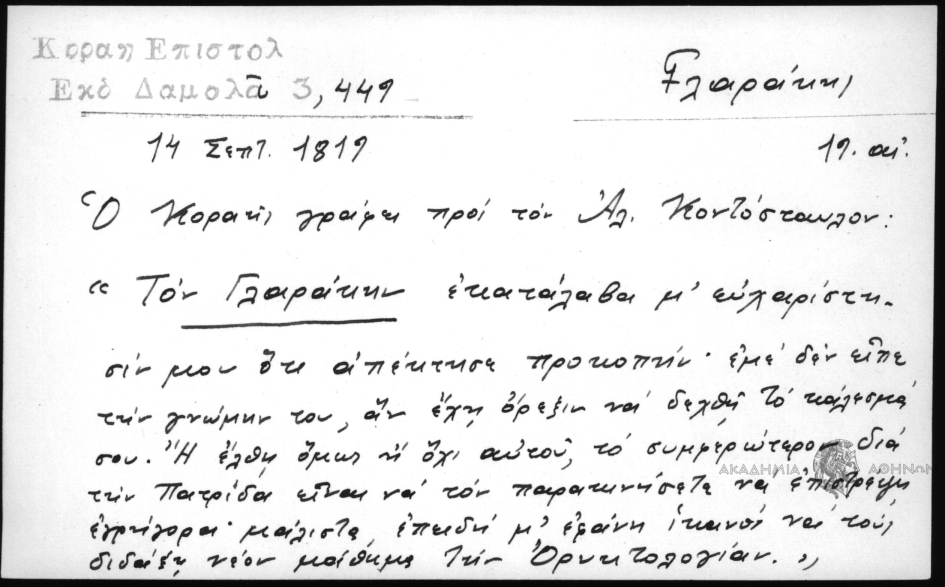 Κοραη Επιστολ
Εκδ Δαμολᾶ 3, 449
Γλαράκης
14 Σεπτ. 1819
19. αἰ.
Ὁ Κοραῆς γράφει πρὸς τὸν Ἀλ. Κοντόσταυλον:
« Τὸν Γλαράκην ἐκατάλαβα μ' εὐχαρίστη-
σίν μου ὅτι ἀπέκτησε προκοπήν· ἐμὲ δὲν εἶπε
τὴν γνώμην του, ἂν ἔχῃ ὄρεξιν νὰ δεχθῇ τὸ κάλεσμά
σου. Ἢ ἔλθῃ ὅμως ἢ ὄχι αὐτοῦ, τὸ συμφερώτερον διὰ
τὴν Πατρίδα εἶναι νὰ τὸν παρακινήσετε νὰ ἐπιστρέψῃ
ἐγρήγορα· μάλιστα ἐπειδὴ μ' ἐφάνη ἱκανὸς νὰ τοὺς
διδάξῃ νέον μάθημα τὴν Ὀρυκτολογίαν. »
ΑΚΑΔΗΜΙΑ ΑΘΗΝΩΝ